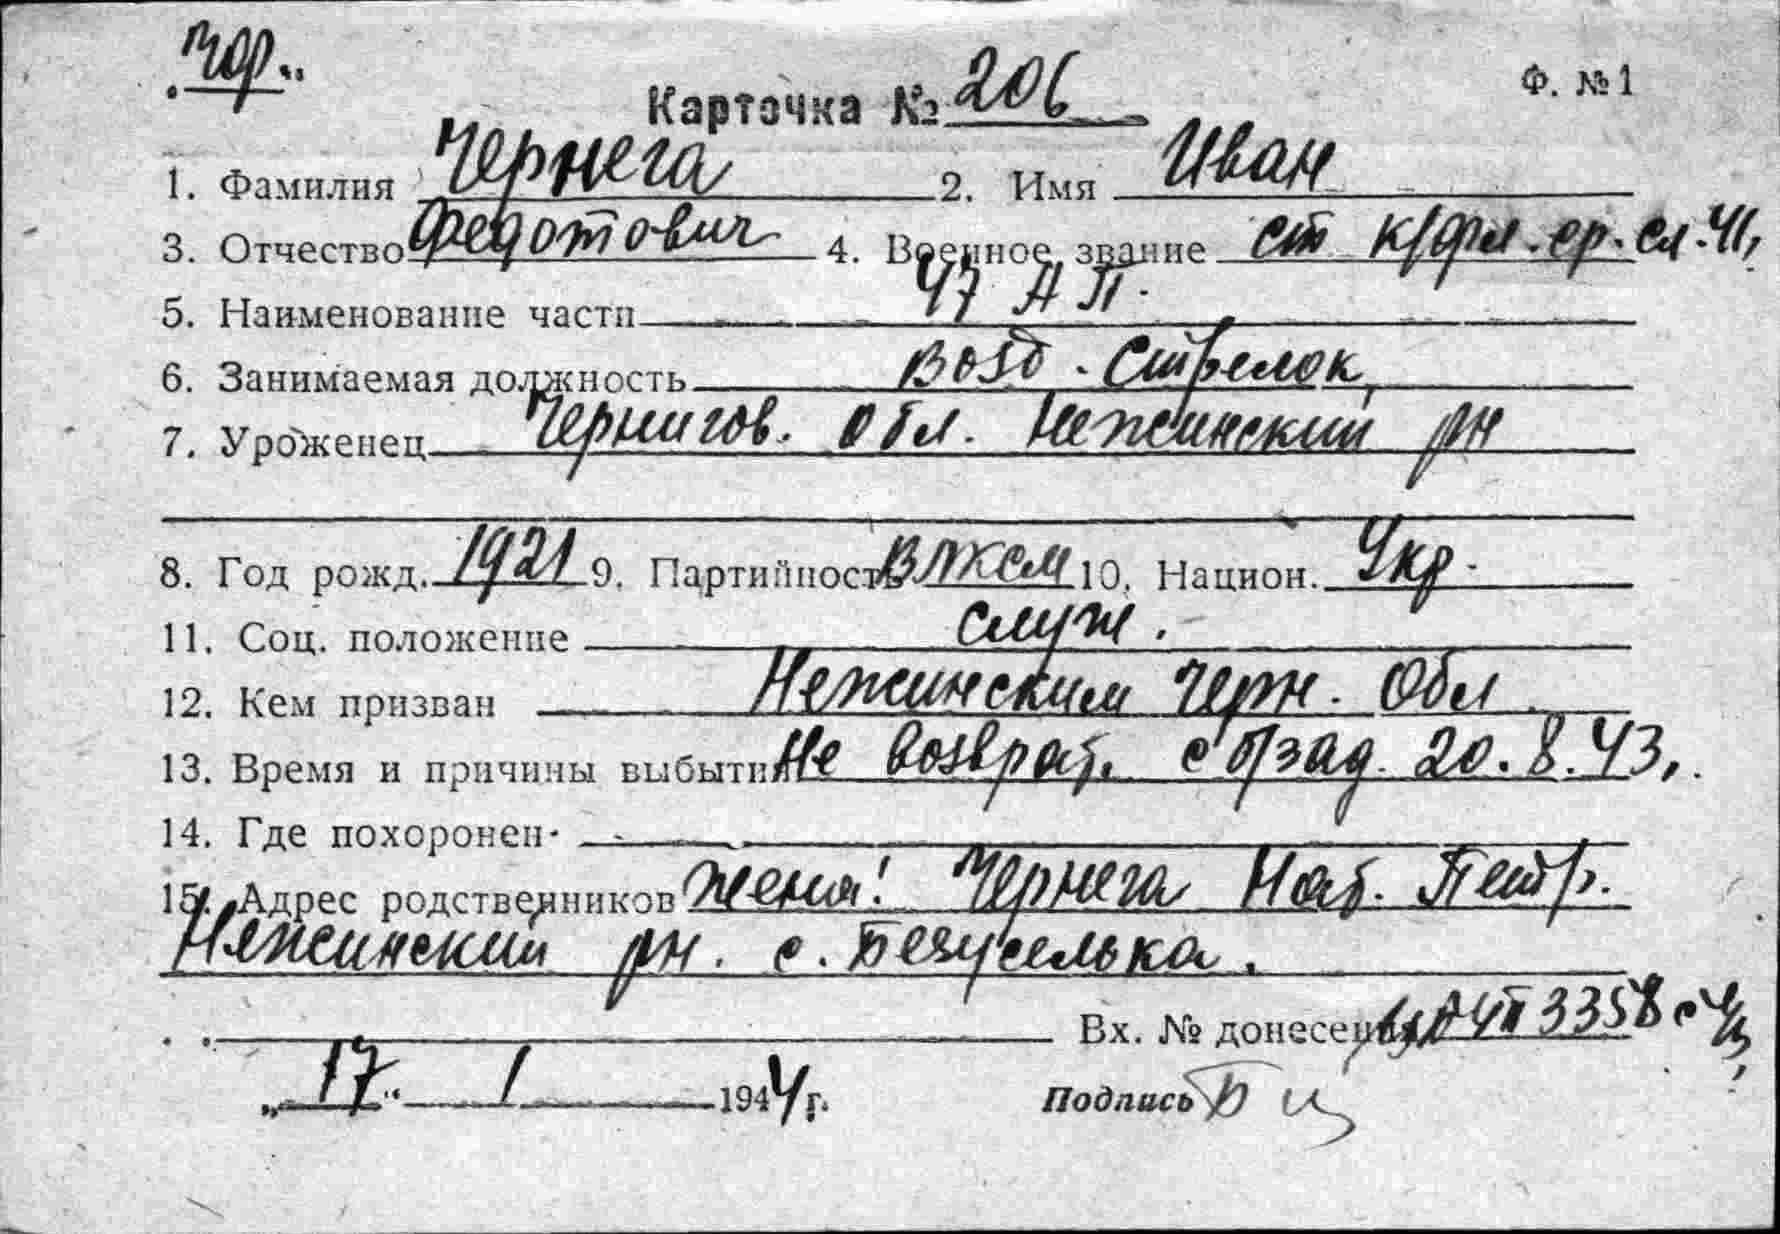 Чор..
Карточка № 206 Ф. №1
1. Фамилия Чернега 2. Имя Иван
3. Отчество Федотович 4. Военное звание ст к/фл. ср. сл. 41,
5. Наименование части 47 АП.
6. Занимаемая должность Возд. Стрелок,
7. Уроженец Чернигов. обл. Нежинский рн
8. Год рожд. 1921 9. Партийность ВЛКСМ 10. Национ. Укр.
11. Соц. положение служ.
12. Кем призван Нежинским Черн. Обл.
13. Время и причины выбытия Не возврат. с б/зад. 20.8.43,.
14. Где похоронен
15. Адрес родственников жена: Чернега Нат. Петр.
Нежинский рн. с. Безуселька.
Вх. № донесения 3358
„17“ 1 1944 г. Подпись